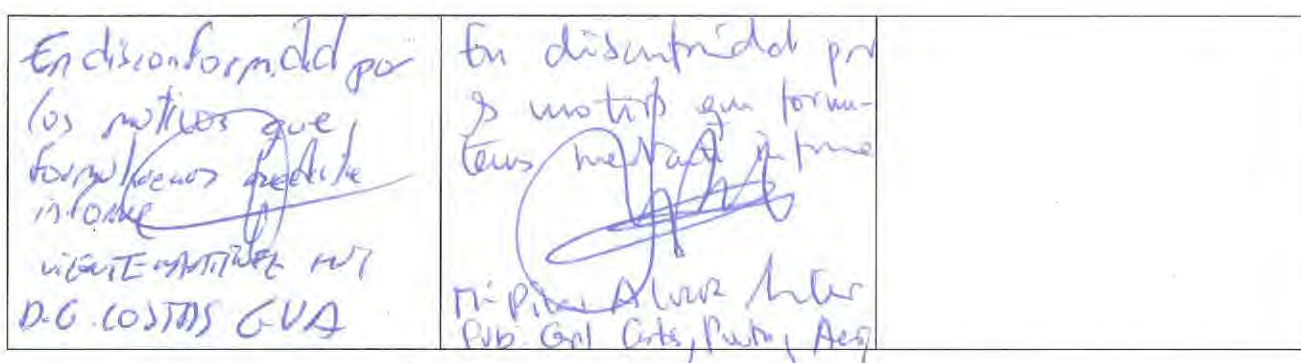 En disconformidad por
los motivos que
formularemos mediante
informe
VICENTE MARTINEZ
D.G. COSTAS GVA
En disconformidad por
motivos que formu-
mediante informe
Mª Pilar
Sub. Gral Costas, Puertos,